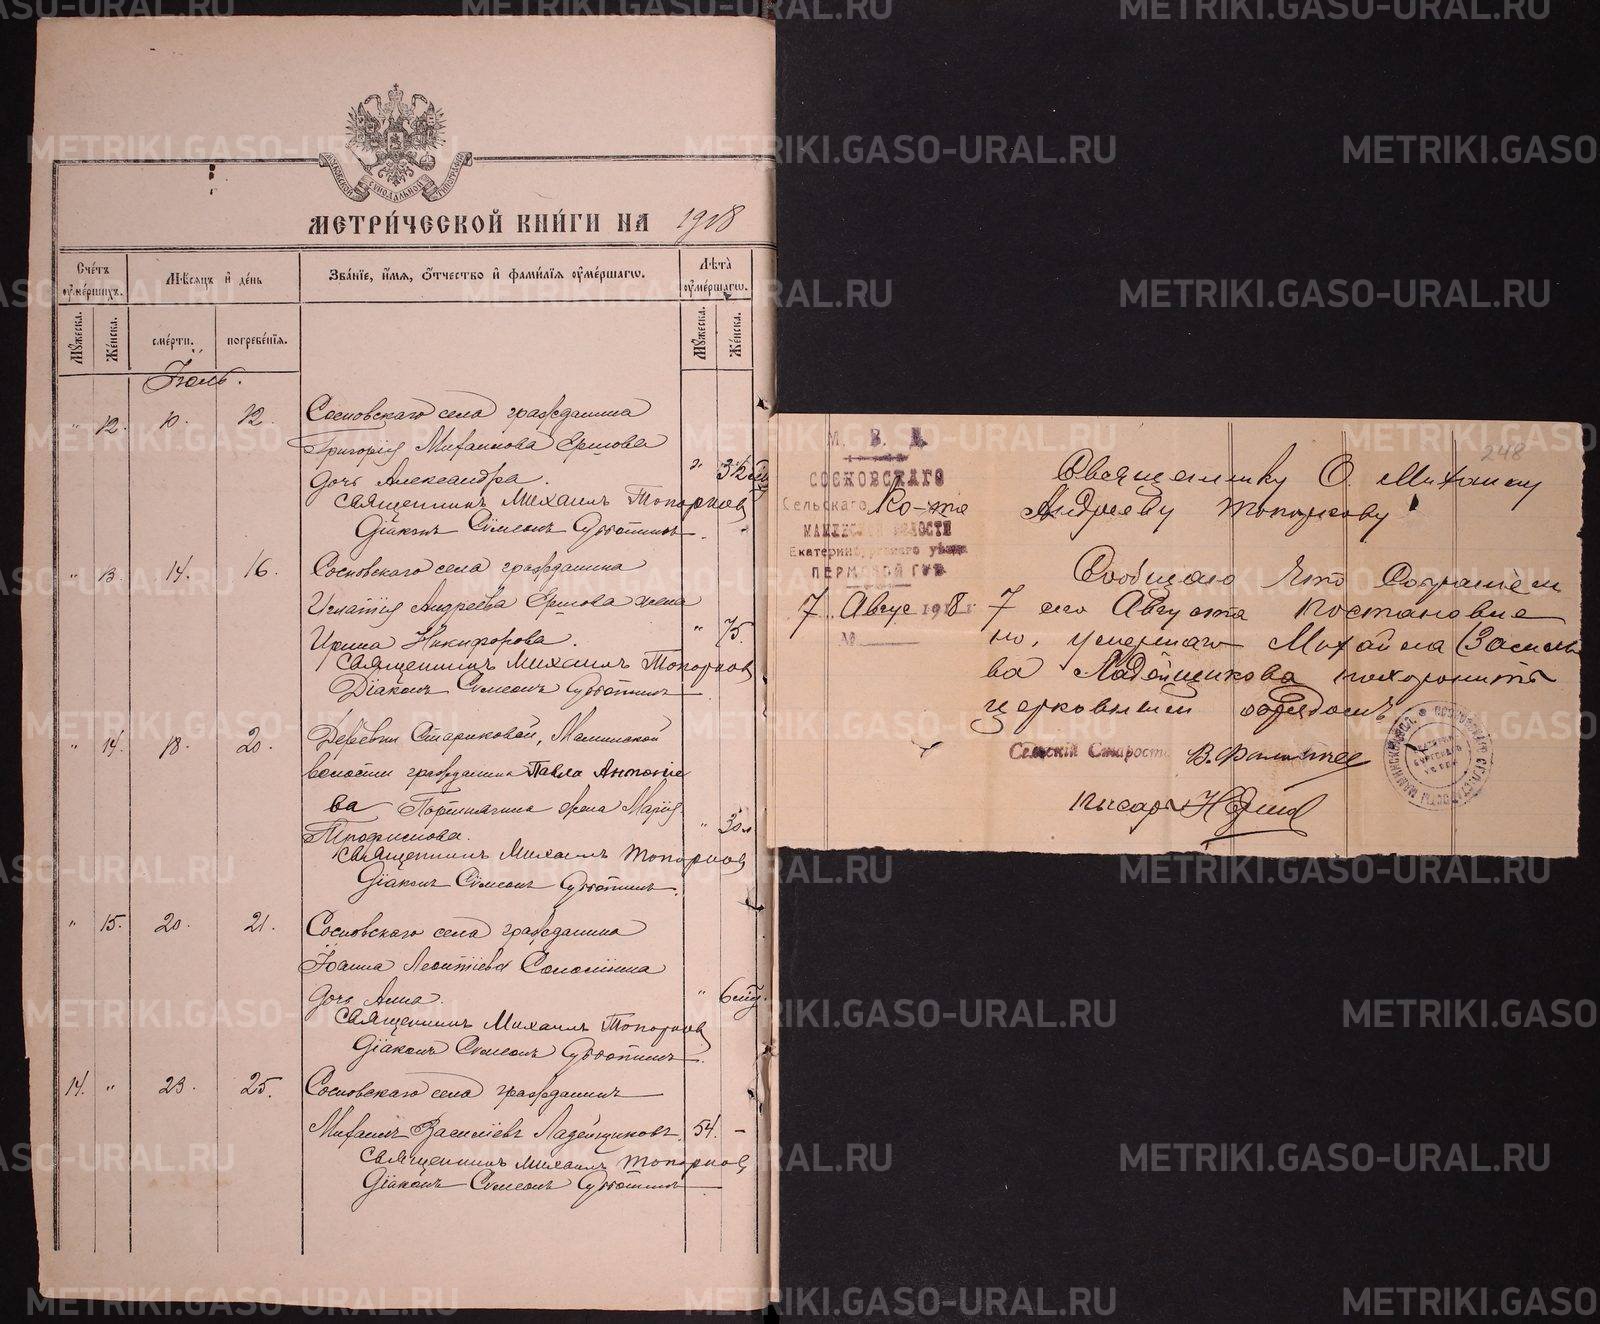 МЕТРИ́ЧЕСКОЙ КНИ́ГИ НА 1918
Сче́тъ оуме́ршихъ.
Мѣ́сяцъ и҆ де́нь
Зва́нїе, и҆́мя, ѻ҆́тчество и҆ фами́лїя оуме́ршагѡ.
Лѣта̀ оуме́ршагѡ.
Мꙋ́жеска.
Же́нска.
сме́рти.
погребе́нїя.
Мꙋ́жеска.
Же́нска.
Іюль.
" 12. 10. 12. Сосновскаго села гражданина
Григорія Михаилова Ершова
дочь Александра. " 3½
Священникъ Михаилъ Топорковъ
Діаконъ Сѵмеонъ
" 13. 14. 16. Сосновскаго села гражданина
Игнатія Андреева Ершова жена
Ирина Никифорова. " 75.
Священникъ Михаилъ Топорковъ
Діаконъ Сѵмеонъ
" 14. 18. 20. Деревни Стариковой, Маминской
волости гражданина Павла Антоніе
ва жена Марія
Трофимова. " 30 л
Священникъ Михаилъ Топорковъ
Діаконъ Сѵмеонъ
" 15. 20. 21. Сосновскаго села гражданина
Іоанна Леонтіева
дочь Анна. " 6
Священникъ Михаилъ Топорковъ
Діаконъ Сѵмеонъ
14. " 23. 25. Сосновскаго села гражданинъ
Михаилъ Василіевъ Ладейщиковъ. 54. –
Священникъ Михаилъ Топорковъ
Діаконъ Сѵмеонъ
248
М. В. Д.
СОСНОВСКАГО
Сельскаго Ко-та
МАМИНСКОЙ ВОЛОСТИ
Екатеринбургскаго уѣзда
ПЕРМСКОЙ ГУБ.
7 Авгус 1918 г
№
Священнику О. Михаилу
Андрееву Топоркову
Сообщаю что Собраніем
7 сго Августа постановле
но, умершаго Михаила Василь
ва Ладейщикова похоронить
церковным обрядомъ
Сельскій Староста
писарь
METRIKI.GASO-URAL.RU